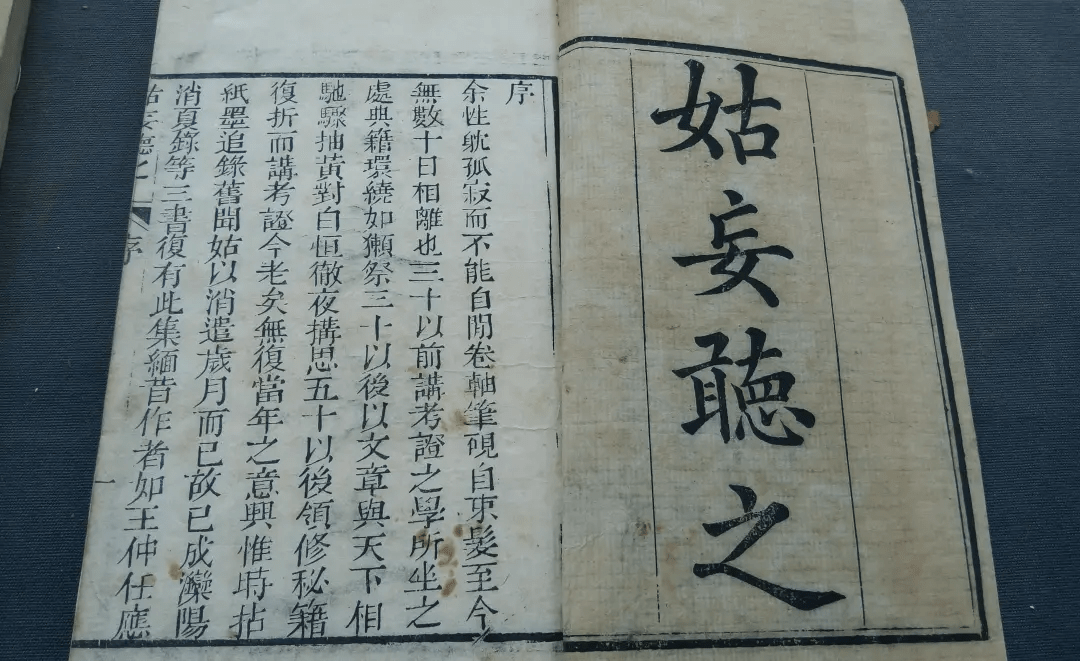 姑妄聽之
序
余性耽孤寂而不能自閒卷軸筆硯自束髮至今
無數十日相離也三十以前講考證之學所坐之
處典籍環繞如獺祭三十以後以文章與天下相
馳驟抽黃對白恒徹夜搆思五十以後領修秘籍
復折而講考證今老矣無復當年之意興惟時拈
紙墨追錄舊聞姑以消遣歲月而已故已成灤陽
消夏錄等三書復有此集緬昔作者如王仲任應
姑妄聽之 序 一